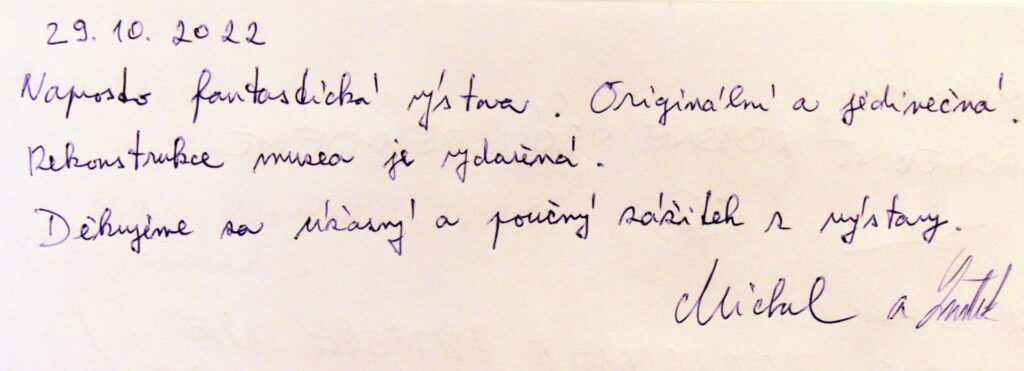 29.10.2022
Naprosto fantastická výstava. Originální a jedinečná.
Rekonstrukce musea je vydařená.
Děkujeme za úžasný a poučný zážitek z výstavy.
Michal a